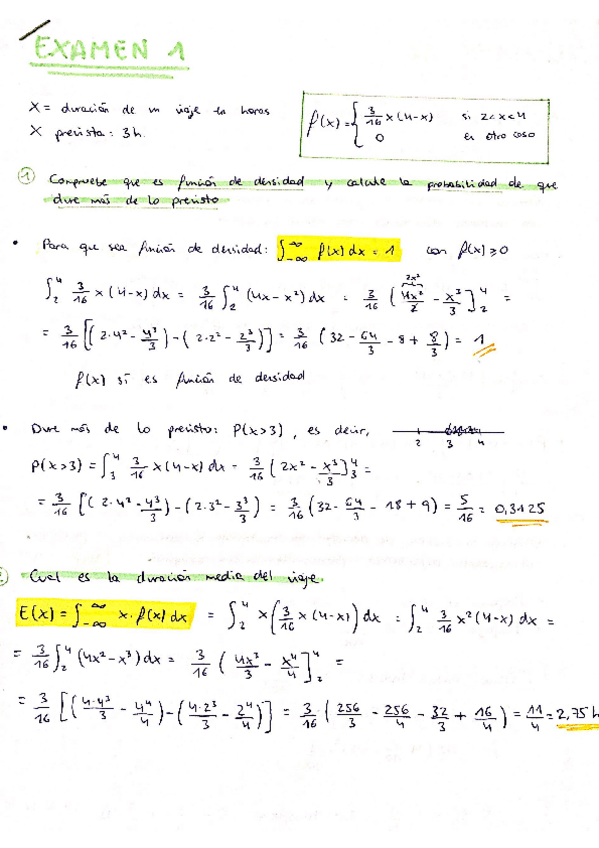 EXAMEN 1
X = duración de un viaje en horas
X prevista: 3h.
f(x) = { 3/16 x(4-x) si 2<x<4
0 en otro caso
① Compruebe que es función de densidad y calcule la probabilidad de que
dure más de lo previsto
• Para que sea función de densidad: ∫_{-∞}^{∞} f(x) dx = 1 con f(x) ≥ 0
∫_2^4 3/16 x(4-x) dx = 3/16 ∫_2^4 (4x-x²) dx = 3/16 [4x²/2 - x³/3]_2^4 = 2x²
= 3/16 [(2·4² - 4³/3) - (2·2² - 2³/3)] = 3/16 (32 - 64/3 - 8 + 8/3) = 1
f(x) sí es función de densidad
• Dure más de lo previsto: P(x>3), es decir, 2 3 4
P(x>3) = ∫_3^4 3/16 x(4-x) dx = 3/16 [2x² - x³/3]_3^4 =
= 3/16 [(2·4² - 4³/3) - (2·3² - 3³/3) = 3/16 (32 - 64/3 - 18 + 9) = 5/16 = 0,3125
Cual es la duración media del viaje.
E(x) = ∫_{-∞}^{∞} x·f(x) dx = ∫_2^4 x(3/16 x(4-x)) dx = ∫_2^4 3/16 x²(4-x) dx =
= 3/16 ∫_2^4 (4x²-x³) dx = 3/16 [4x³/3 - x⁴/4]_2^4 =
= 3/16 [(4·4³/3 - 4⁴/4) - (4·2³/3 - 2⁴/4)] = 3/16 · (256/3 - 256/4 - 32/3 + 16/4) = 11/4 = 2,75 h